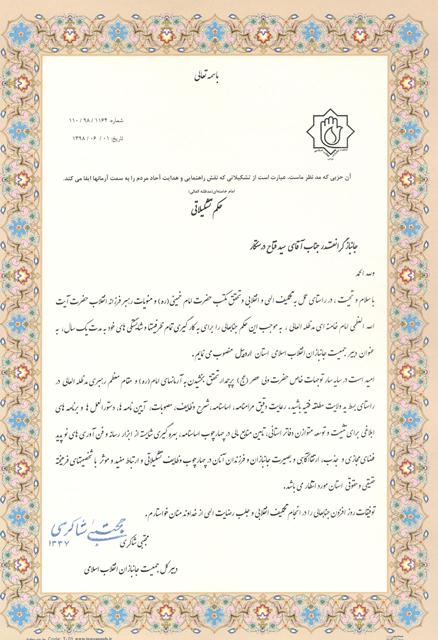 باسمه تعالی
شماره: ۱۱۶۴ / ۹۸ / ۱۱۰
تاریخ: ۰۱ / ۰۶ / ۱۳۹۸
آن حزبی که مد نظر ماست، عبارت است از تشکیلاتی که نقش راهنمایی و هدایت آحاد مردم را به سمت آرمانها ایفا می کند.
امام خامنه‌ای (مدظله العالی)
حکم تشکیلاتی
جانباز گرانقدر جناب آقای سید فتاح درستکار
وله الحمد
با سلام و تحیت ، در راستای عمل به تکلیف الهی و انقلابی و تحقق مکتب حضرت امام خمینی (ره) و منویات رهبر فرزانه انقلاب حضرت آیت
اله العظمی امام خامنه ای مدظله العالی ، به موجب این حکم جنابعالی را برای به کارگیری تمام ظرفیتها و شایستگی های خود به مدت یک سال، به
عنوان دبیر جمعیت جانبازان انقلاب اسلامی استان اردبیل منصوب می نمایم.
امید است در سایه سار توجهات خاص حضرت ولی عصر (عج) پرچمدار تحقق بخشیدن به آرمانهای امام (ره) و مقام معظم رهبری مدظله العالی در
راستای بسط ید ولایت مطلقه فقیه باشید. رعایت دقیق مرامنامه، اساسنامه، شرح وظایف، مصوبات، آیین نامه ها، دستورالعمل ها و برنامه های
ابلاغی برای تثبیت و توسعه متوازن دفاتر استانی، تامین منابع مالی در چهارچوب اساسنامه، بهره گیری شایسته از ابزار رسانه و فن آوری های نو پدید
فضای مجازی و جذب، ارتقا آگاهی و بصیرت جانبازان و فرزندان آنان در چهارچوب وظایف تشکیلاتی و ارتباط مفید و موثر با شخصیتهای فرهیخته
حقیقی و حقوقی استان مورد انتظار می باشد.
توفیقات روز افزون جنابعالی را در انجام تکلیف انقلابی و جلب رضایت الهی از خداوند منان خواستارم.
مجتبی شاکری
۱۳۳۷
مجتبی شاکری
دبیرکل جمعیت جانبازان انقلاب اسلامی